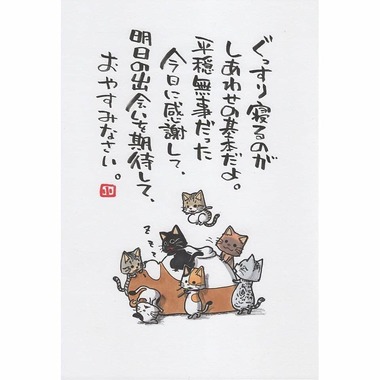 ぐっすり寝るのが
しあわせの基本だよ。
平穏無事だった
今日に感謝して、
明日の出会いを期待して、
おやすみなさい。
zzzz